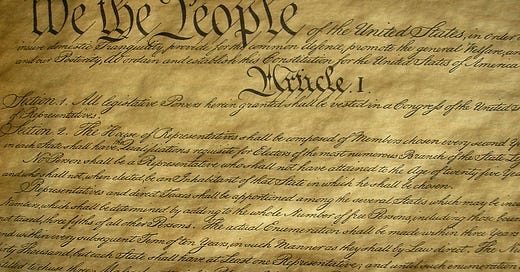 We the People of the United States, in Order
insure domestic Tranquility, provide for the common defence, promote the general Welfare, and
and our Posterity, do ordain and establish this Constitution for the United States of America
Article. I.
Section. 1. All legislative Powers herein granted shall be vested in a Congress of the United
of Representatives.
Section. 2. The House of Representatives shall be composed of Members chosen every second
in each State shall have the Qualifications requisite for Electors of the most numerous Branch of the State
No Person shall be a Representative who shall not have attained to the Age of twenty five
and who shall not, when elected, be an Inhabitant of that State in which he shall be chosen.
Representatives and direct Taxes shall be apportioned among the several States which may be
Numbers, which shall be determined by adding to the whole Number of free Persons, including those
not taxed, three fifths of all other Persons. The actual Enumeration shall be made
and within every subsequent Term of ten Years, in such Manner as they shall by Law direct. The
Thousand, but each State shall have at Least one Representative; and until such enumeration